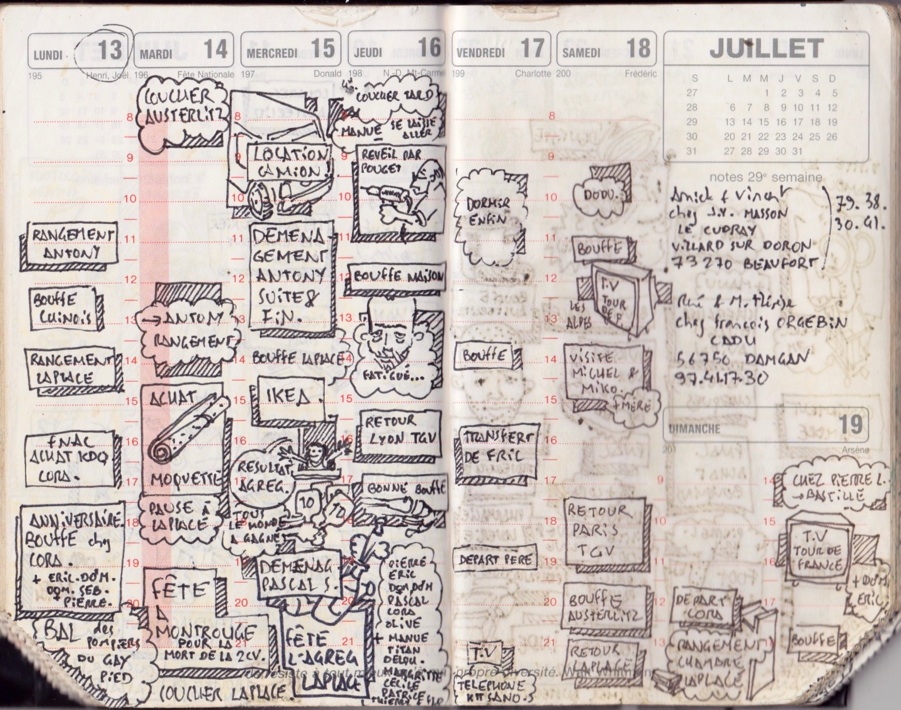 LUNDI 13
195 Henri, Joël
RANGEMENT
ANTONY
BOUFFE
CHINOIS
RANGEMENT
LAPLACE
FNAC
ACHAT KDO
CORA.
ANNIVERSAIRE
BOUFFE chez
CORA
+ ERIC. DOM.
DOM. SEB.
+ PIERRE.
BAL des
POMPIERS
DU GAY
PIED
MARDI 14
196 Fête Nationale
COUCHER
AUSTERLITZ
8
9
10
11
12
13
→ ANTONY
RANGEMENT
ACHAT
MOQUETTE
PAUSE À
LAPLACE
FÊTE
À
MONTROUGE
POUR LA
MORT DE LA 2CV.
COUCHER LAPLACE
MERCREDI 15
197 Donald
LOCATION
CAMION
DEMENA
GEMENT
ANTONY
SUITE &
FIN.
BOUFFE LAPLACE
IKEA.
RESULTAT
AGREG.
10
TOUS
LE MONDE
A GAGNÉ
DEMENAG
PASCAL S.
FÊTE
L'AGREG
LAPLACE
JEUDI 16
198 N.-D. Mt-Carmel
COUCHER TARD
MANUE SE LAISSE
ALLER
REVEIL PAR
POUGET
BOUFFE MAISON
FATIGUÉ...
RETOUR
LYON TGV
BONNE BOUFFE
PIERRE
ERIC
DOM DOM
PASCAL
CORA
OLIVE
+ MANUE
TITAN
DELOU.
MARGRITTE
CECILE
PATRICE
VENDREDI 17
199 Charlotte
8
DORMIR
ENFIN
BOUFFE
TRANSFERT
DE FRIC
DEPART PERE
T.V
TELEPHONE
SAMEDI 18
200 Frédéric
8
9
10
DODO.
11
BOUFFE
12
T.V
TOUR
DE F
LES
ALPES
13
14
VISITE
MICHEL &
MIKO.
+ MÈRE
15
16
17
RETOUR
PARIS
TGV
18
19
BOUFFE
AUSTERLITZ
20
RETOUR
LAPLACE
21
JUILLET
S L M M J V S D
27 1 2 3 4 5
28 6 7 8 9 10 11 12
29 13 14 15 16 17 18 19
30 20 21 22 23 24 25 26
31 27 28 29 30 31
notes 29e semaine
chez J.Y. MASSON
LE CUDRAY
VILLARD SUR DORON
73270 BEAUFORT
79.38.
30.41.
chez François ORGEBIN
CADU
56750 DAMGAN
97.41.17.30
DIMANCHE 19
Arsène
CHEZ PIERRE L.
→ BASTILLE
T.V
TOUR DE
FRANCE
+ DOM
ERIC
DEPART
CORA
RANGEMENT
CHAMBRE
LAPLACE
BOUFFE